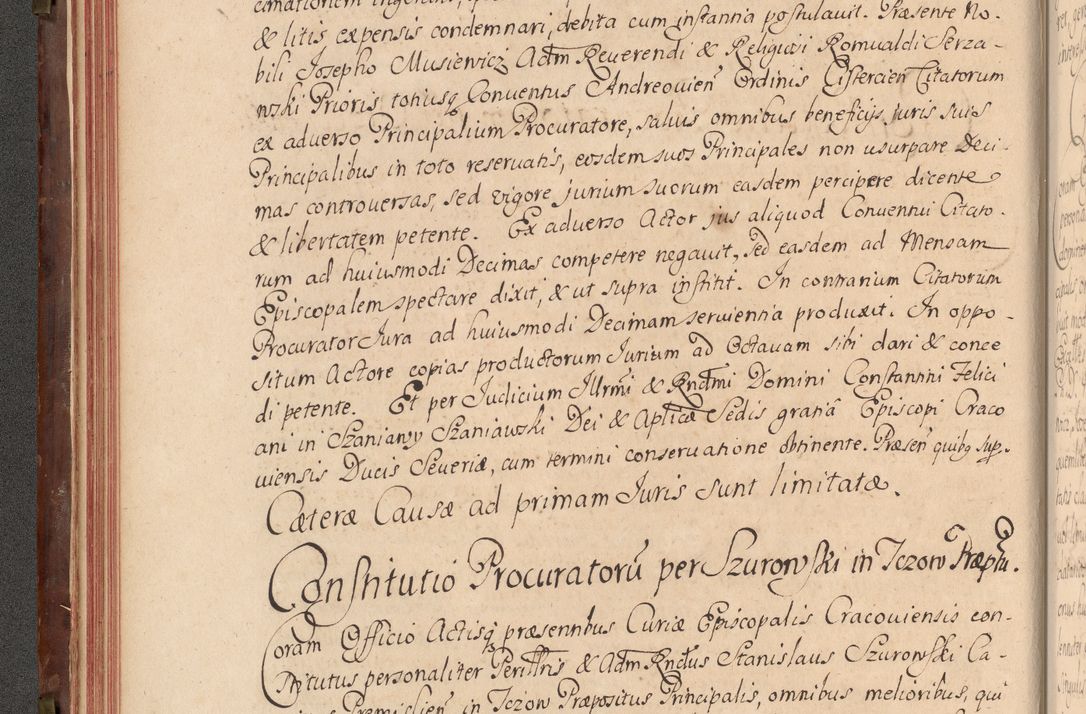 & litis expensis condemnari, debita cum instantia postulavit. Præsente No-
bili Josepho Musiewicz Adm Reverendi & Religiosi Romualdi Serza-
wski Prioris totiusq Conventus Andreovien Ordinis Cistercien Citatorum
ex adverso Principalium Procuratore, salvis omnibus beneficijs juris suis
Principalibus in toto reservatis, eosdem suos Principales non usurpare Deci-
mas controversas, sed vigore jurium suorum easdem percipere dicente
& libertatem petente. Ex adverso Actor jus aliquod Conventui Citato-
rum ad huiusmodi Decimas competere negavit, sed easdem ad Mensam
Episcopalem spectare dixit, & ut supra institit. In contrarium Citatorum
Procurator Jura ad huiusmodi Decimam servientia produxit. In oppo-
situm Actore copias productorum Jurium ad Octavam sibi dari & conce
di petente. Et per Judicium Illrmi & Rndmi Domini Constantini Felici
ani in Szaniawy Szaniawski Dei & Aplicæ Sedis gratia Episcopi Craco
viensis Ducis Severiæ, cum termini conservatione obtinente. Præsen quibq sup.
Cæteræ Causæ ad primam Juris sunt limitatæ.
Constitutio Procuratorū per Szurowski in Tczow Præptū.
Coram Officio Actisq præsentibus Curiæ Episcopalis Cracoviensis con-
stitutus personaliter Perillris & Adm Rndus Stanislaus Szurowski Ca-
Premislien in Tczow Præpositus Principalis, omnibus melioribus, qui